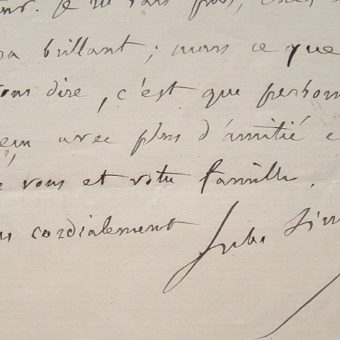 Je ne sais pas,
brillant ; mais ce que
dire, c'est que person
avec plus d'amitié
vous et votre famille.
cordialement
Jules Sim